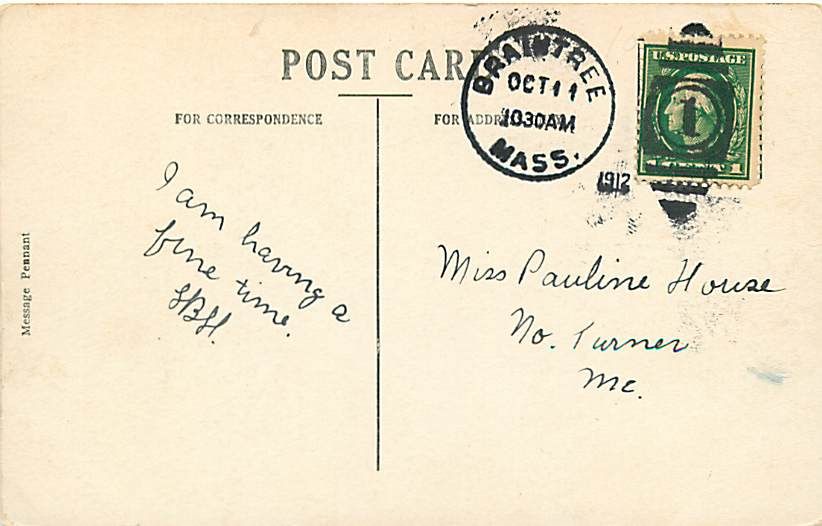 POST CARD
FOR CORRESPONDENCE
FOR ADDRESS ONLY
BRAINTREE
OCT 11
1030AM
MASS.
1912
U.S. POSTAGE
1
1
I am having a
fine time.
Message Pennant
Miss Pauline House
No. Turner
Me.